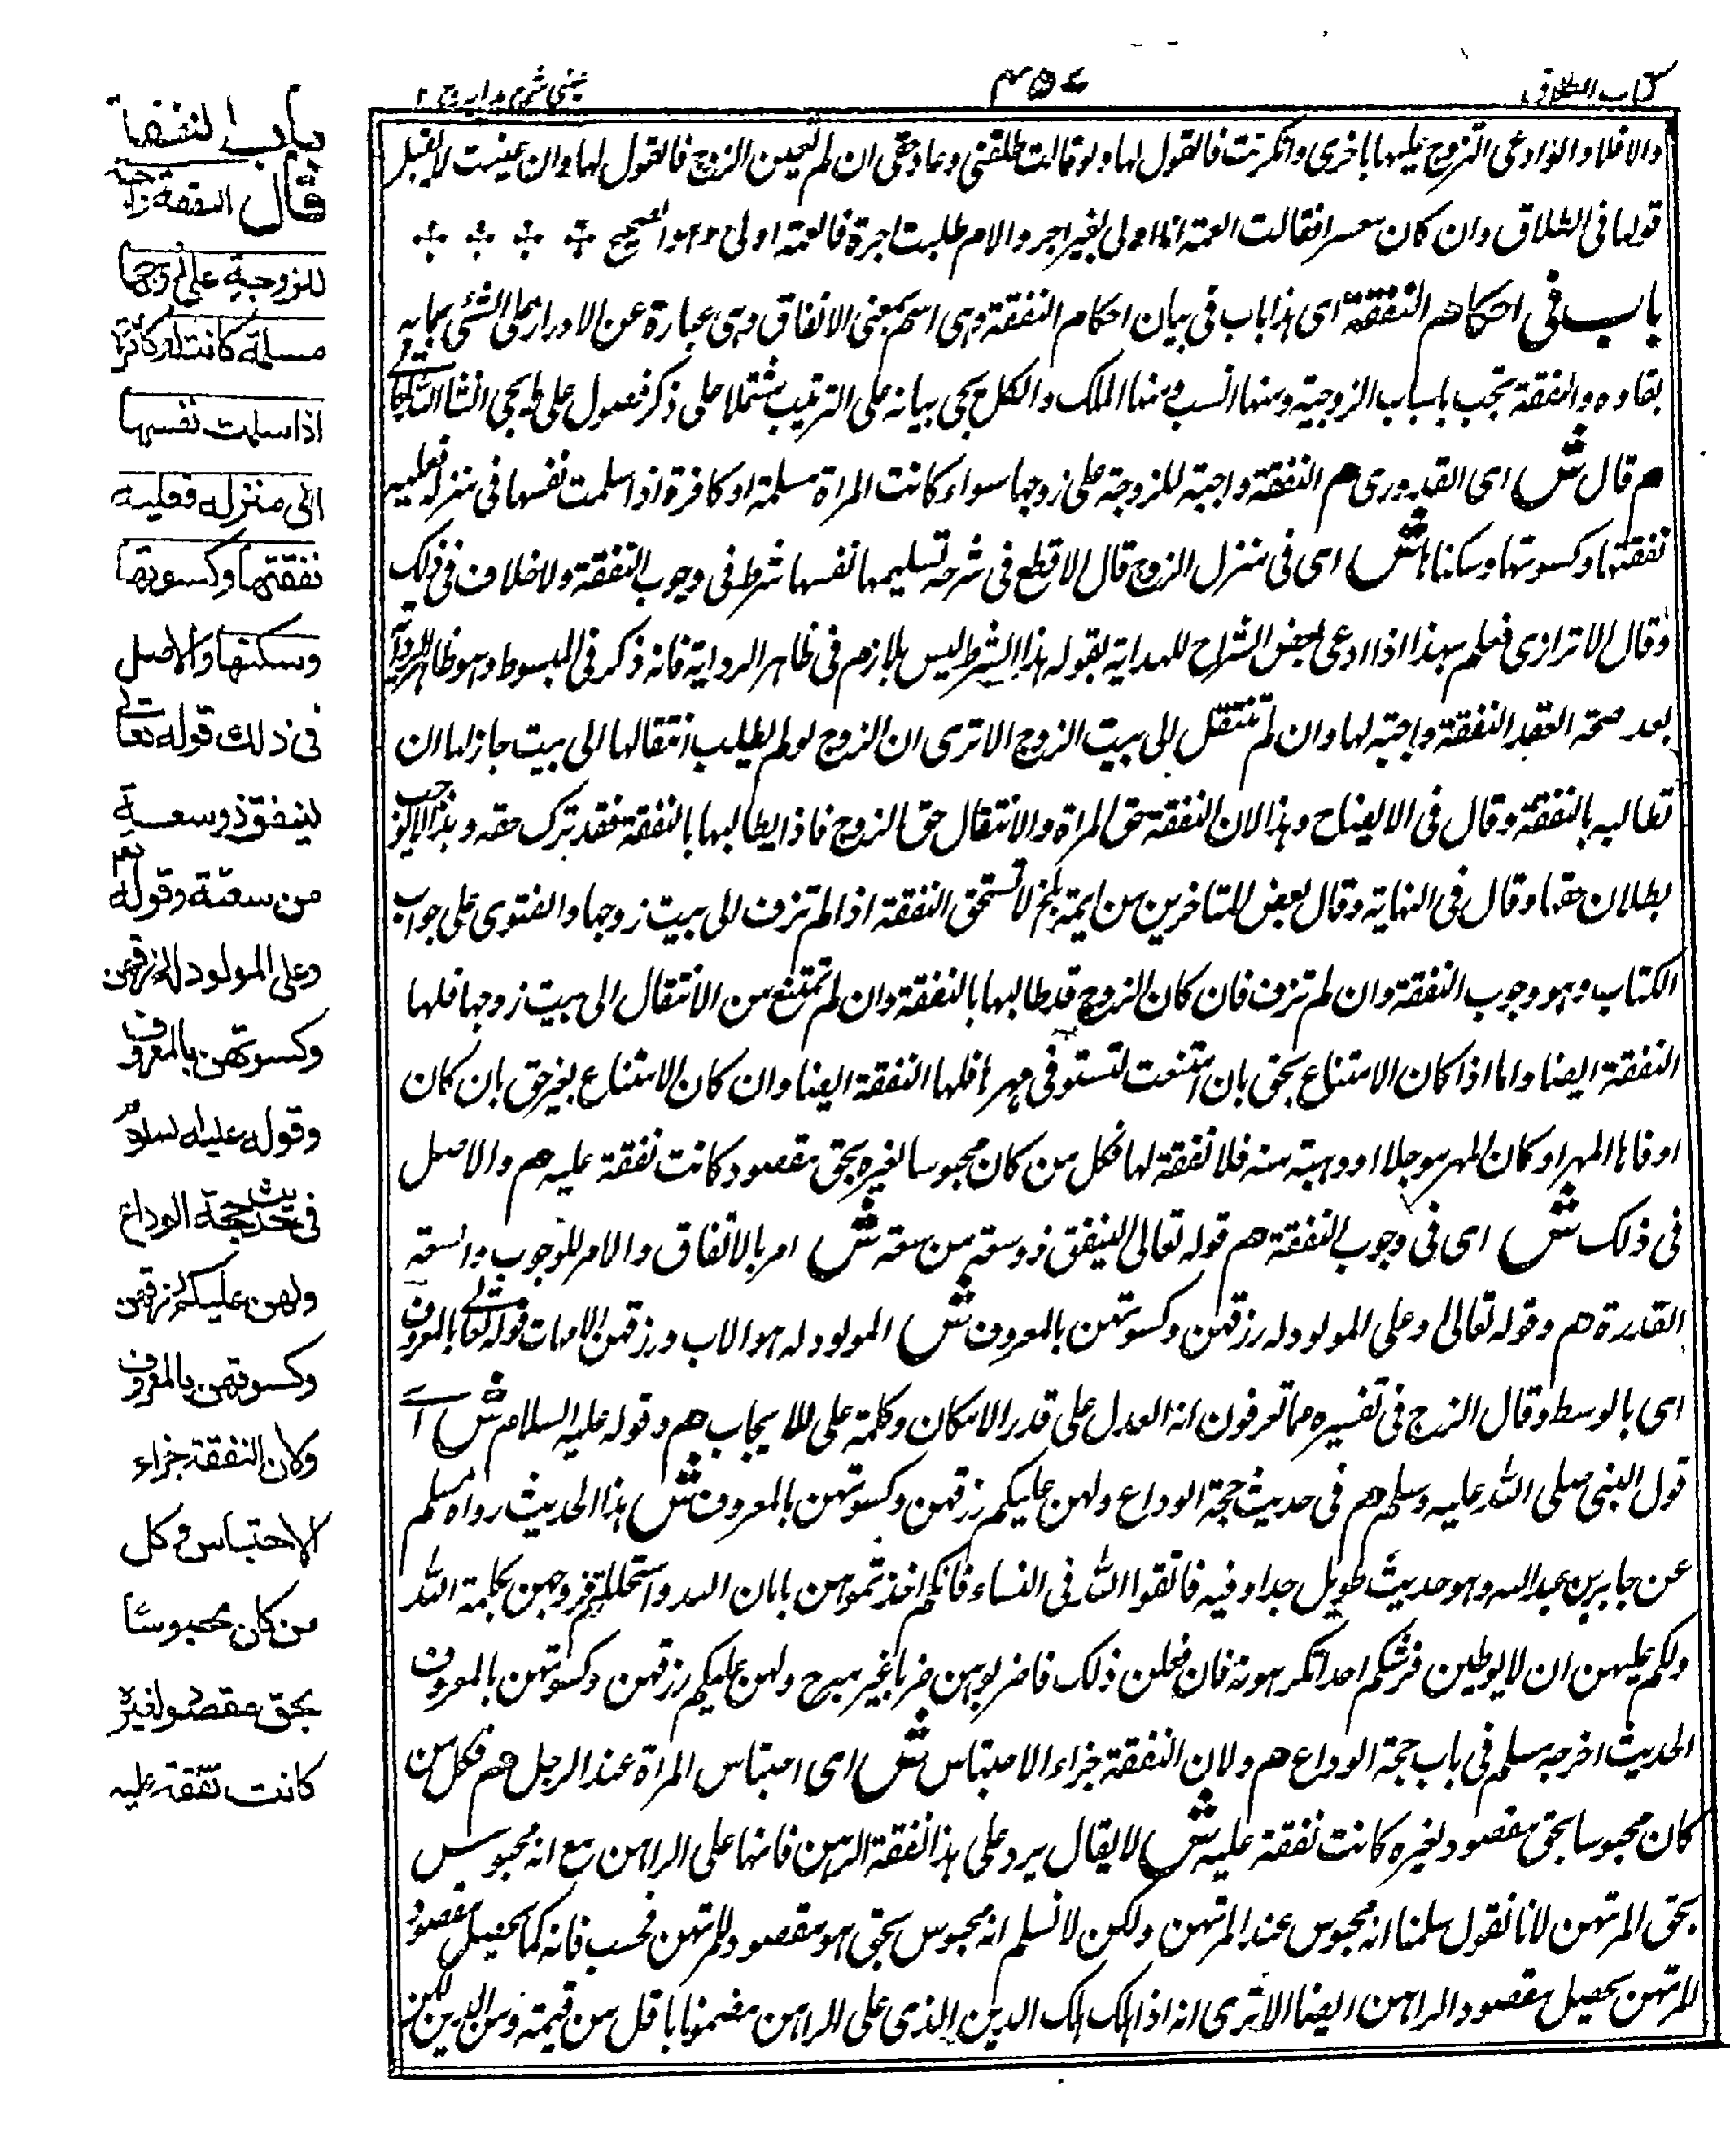 كتاب الطلاق
عينى شرح هدايه ج ٢
والا فلا ولو ادعى التزوج عليها باخرى وانكرت فالقول لها ولو قالت طلقنى وعاد حقى ان لم تعين الزوج فالقول لها وان عينت لا يقبل
قولها فى الطلاق وان كان معسرا فقالت العمة انا اولى بغير اجر والام طلبت اجرة فالعمة اولى وهو الصحيح
باب فى احكام النفقة اى هذا باب فى بيان احكام النفقة وهى اسم بمعنى الانفاق وهى عبارة عن الادرار على الشئ بما به
بقاوه والنفقة تجب باسباب الزوجية ومنها النسب ومنها الملك والكل يجى بيانه على الترتيب مشتملا على ذكر فصول على ما يجى انشا الله تعالى
م قال ش اى القدورى م النفقة واجبة للزوجة على زوجها سواء كانت المراة مسلمة او كافرة اذا سلمت نفسها فى منزله فعليه
نفقتها وكسوتها وسكناها ش اى فى منزل الزوج قال الاقطع فى شرحه تسليمها نفسها شرط فى وجوب النفقة ولا خلاف فى ذلك
وقال الاترازى فعلم بهذا اذا ادعى بعض الشراح للهداية بقوله هذا الشرط ليس بلازم فى ظاهر الرواية فانه ذكر فى المبسوط وهو ظاهر الرواية
بعد صحة العقد النفقة واجبة لها وان لم تنتقل الى بيت الزوج الا ترى ان الزوج لو لم يطلب انتقالها الى بيت جاز لها ان
تطالبه بالنفقة وقال فى الايضاح وهذا لان النفقة حق المراة والانتقال حق الزوج فاذا يطالبها بالنفقة فقد ترك حقه وهذا لا يوجب
بطلان حقها وقال فى النهاية وقال بعض المتاخرين من ايمة بلخ لا تستحق النفقة اذا لم تزف الى بيت زوجها والفتوى على جواب
الكتاب وهو وجوب النفقة وان لم تزف فان كان الزوج قد طالبها بالنفقة وان لم تمتنع من الانتقال الى بيت زوجها فلها
النفقة ايضا واما اذا كان الامتناع بحق بان امتنعت لتستوفى مهرها فلها النفقة ايضا وان كان الامتناع بغير حق بان كان
اوفاها المهر او كان المهر موجلا او وهبته منه فلا نفقة لها فكل من كان محبوسا لغيره بحق مقصود كانت نفقة عليه م والاصل
فى ذلك ش اى فى وجوب النفقة م قوله تعالى لينفق ذو سعة من سعته ش امر بالانفاق والامر للوجوب والسعة
القدرة م وقوله تعالى وعلى المولود له رزقهن وكسوتهن بالمعروف ش المولود له هو الاب ورزقهن الامهات قوله تعالى بالمعروف
اى بالوسط وقال الزج فى تفسيره مما تعرفون انه العدل على قدر الامكان وكلمة على للايجاب م وقوله عليه السلام ش اے
قول النبى صلى الله عليه وسلم م فى حديث حجة الوداع ولهن عليكم رزقهن وكسوتهن بالمعروف ش هذا الحديث رواه مسلم
عن جابر بن عبدالله وهو حديث طويل جدا وفيه فاتقوا الله فى النساء فانكم اخذتموهن بامان الله واستحللتم فروجهن بكلمة الله
ولكم عليهن ان لا يوطين فرشكم احدا تكرهونه فان فعلن ذلك فاضربوهن ضربا غير مبرح ولهن عليكم رزقهن وكسوتهن بالمعروف
الحديث اخرجه مسلم فى باب حجة الوداع م ولان النفقة جزاء الاحتباس ش اى احتباس المراة عند الرجل م فكل من
كان محبوسا بحق مقصود لغيره كانت نفقة عليه ش لا يقال يرد على هذا نفقة الرهن فانها على الراهن مع انه محبوس
بحق المرتهن لانا نقول سلمنا انه محبوس عند المرتهن ولكن لا نسلم انه محبوس بحق هو مقصود للمرتهن فحسب فانه كما يحصل مقصود
للمرتهن يحصل مقصود الراهن ايضا الا ترى انه اذا هلك هلك الدين الذى على الراهن مضمونا باقل من قيمته ومن الدين لكن
باب النفقة
قال النفقة واجبة
للزوجة على زوجها
مسلمة كانت او كافرة
اذا سلمت نفسها
الى منزله فعليه
نفقتها وكسوتها
وسكنها والاصل
فى ذلك قوله تعالى
لينفق ذو سعة
من سعته وقوله تعم
وعلى المولود له رزقهن
وكسوتهن بالمعروف
وقوله عليه السلام
فى حديث حجة الوداع
ولهن عليكم رزقهن
وكسوتهن بالمعروف
ولان النفقة جزاء
الاحتباس وكل
من كان محبوسا
بحق مقصود لغيره
كانت نفقة عليه